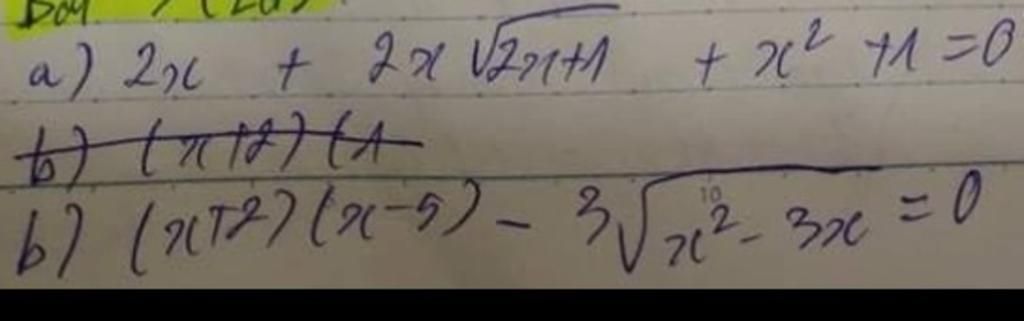 a) 2x + 2x √2x+1 + x² +1 = 0
b) (x+2) (1
b) (x+2)(x-5) - 3√x² - 3x = 0